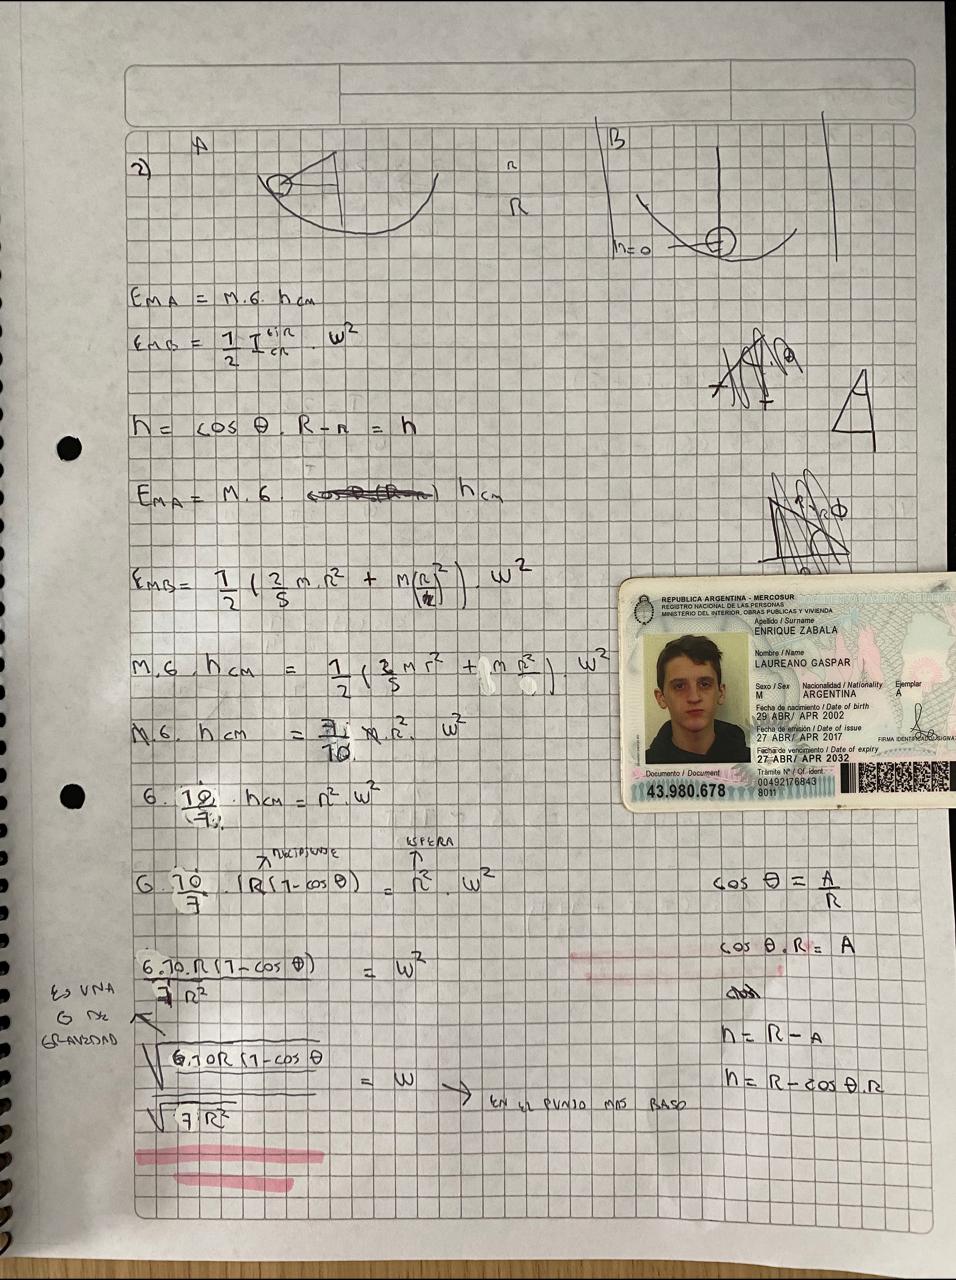 2)
A
r
R
B
h=0
E_MA = M.G. h_CM
E_MB = 1/2 I_CR . w²
h = cos θ . R-r = h
E_MA = M.G. h_CM
E_MB = 1/2 ( 2/5 m.r² + m(r)² ) . w²
M.G. h_CM = 1/2 ( 2/5 m r² + m r² ) . w²
M.G. h_CM = 7/10 . M.r². w²
G. 10/7 . h_CM = r². w²
RECIPIENTE
ESFERA
G. 10/7 . (R(1-cos θ) = r² . w²
G.10.R(1-cos θ) / 7 r² = w²
ES UNA
G DE
GRAVEDAD
√G.10R(1-cos θ / √7 R² = w → EN EL PUNTO MAS BAJO
cos θ = A/R
cos θ.R = A
h = R-A
h = R-cos θ.R
REPUBLICA ARGENTINA - MERCOSUR
REGISTRO NACIONAL DE LAS PERSONAS
MINISTERIO DEL INTERIOR, OBRAS PUBLICAS Y VIVIENDA
Apellido / Surname
ENRIQUE ZABALA
Nombre / Name
LAUREANO GASPAR
Sexo / Sex Nacionalidad / Nationality Ejemplar
M ARGENTINA A
Fecha de nacimiento / Date of birth
29 ABR/ APR 2002
Fecha de emisión / Date of issue
27 ABR/ APR 2017
Fecha de vencimiento / Date of expiry
27 ABR/ APR 2032
Documento / Document
43.980.678
Trámite N° / Of. ident.
00492176843
8011